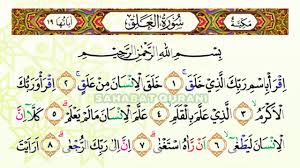 مَكِّيَّة سُورَةُ الْعَلَقِ آيَاتُهَا ١٩
بِسْمِ اللَّهِ الرَّحْمَٰنِ الرَّحِيمِ
اِقْرَأْ بِاسْمِ رَبِّكَ الَّذِي خَلَقَ ١ خَلَقَ الْإِنْسَانَ مِنْ عَلَقٍ ٢ اِقْرَأْ وَرَبُّكَ
SAHABAT QURANI
الْأَكْرَمُ ٣ الَّذِي عَلَّمَ بِالْقَلَمِ ٤ عَلَّمَ الْإِنْسَانَ مَا لَمْ يَعْلَمْ ٥ كَلَّا إِنَّ
الْإِنْسَانَ لَيَطْغَىٰ ٦ أَنْ رَآهُ اسْتَغْنَىٰ ٧ إِنَّ إِلَىٰ رَبِّكَ الرُّجْعَىٰ ٨ أَرَأَيْتَ